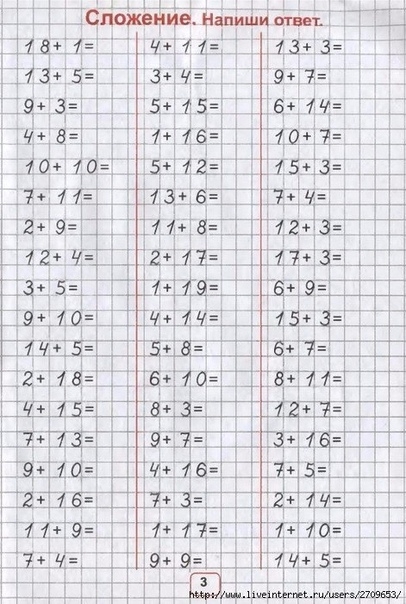 Сложение. Напиши ответ.
18+ 1= 4+ 11= 13+ 3=
13+ 5= 3+ 4= 9+ 7=
9+ 3= 5+ 15= 6+ 14=
4+ 8= 1+ 16= 10+ 7=
10+ 10= 5+ 12= 15+ 3=
7+ 11= 13+ 6= 7+ 4=
2+ 9= 11+ 8= 12+ 3=
12+ 4= 2+ 17= 17+ 3=
3+ 5= 1+ 19= 6+ 9=
9+ 10= 4+ 14= 15+ 3=
14+ 5= 5+ 8= 6+ 7=
2+ 18= 6+ 10= 8+ 11=
4+ 15= 8+ 3= 12+ 7=
7+ 13= 9+ 7= 3+ 16=
9+ 10= 4+ 16= 7+ 5=
2+ 16= 7+ 3= 2+ 14=
11+ 9= 1+ 17= 1+ 10=
7+ 4= 9+ 9= 14+ 5=
3
http://www.liveinternet.ru/users/2709653/